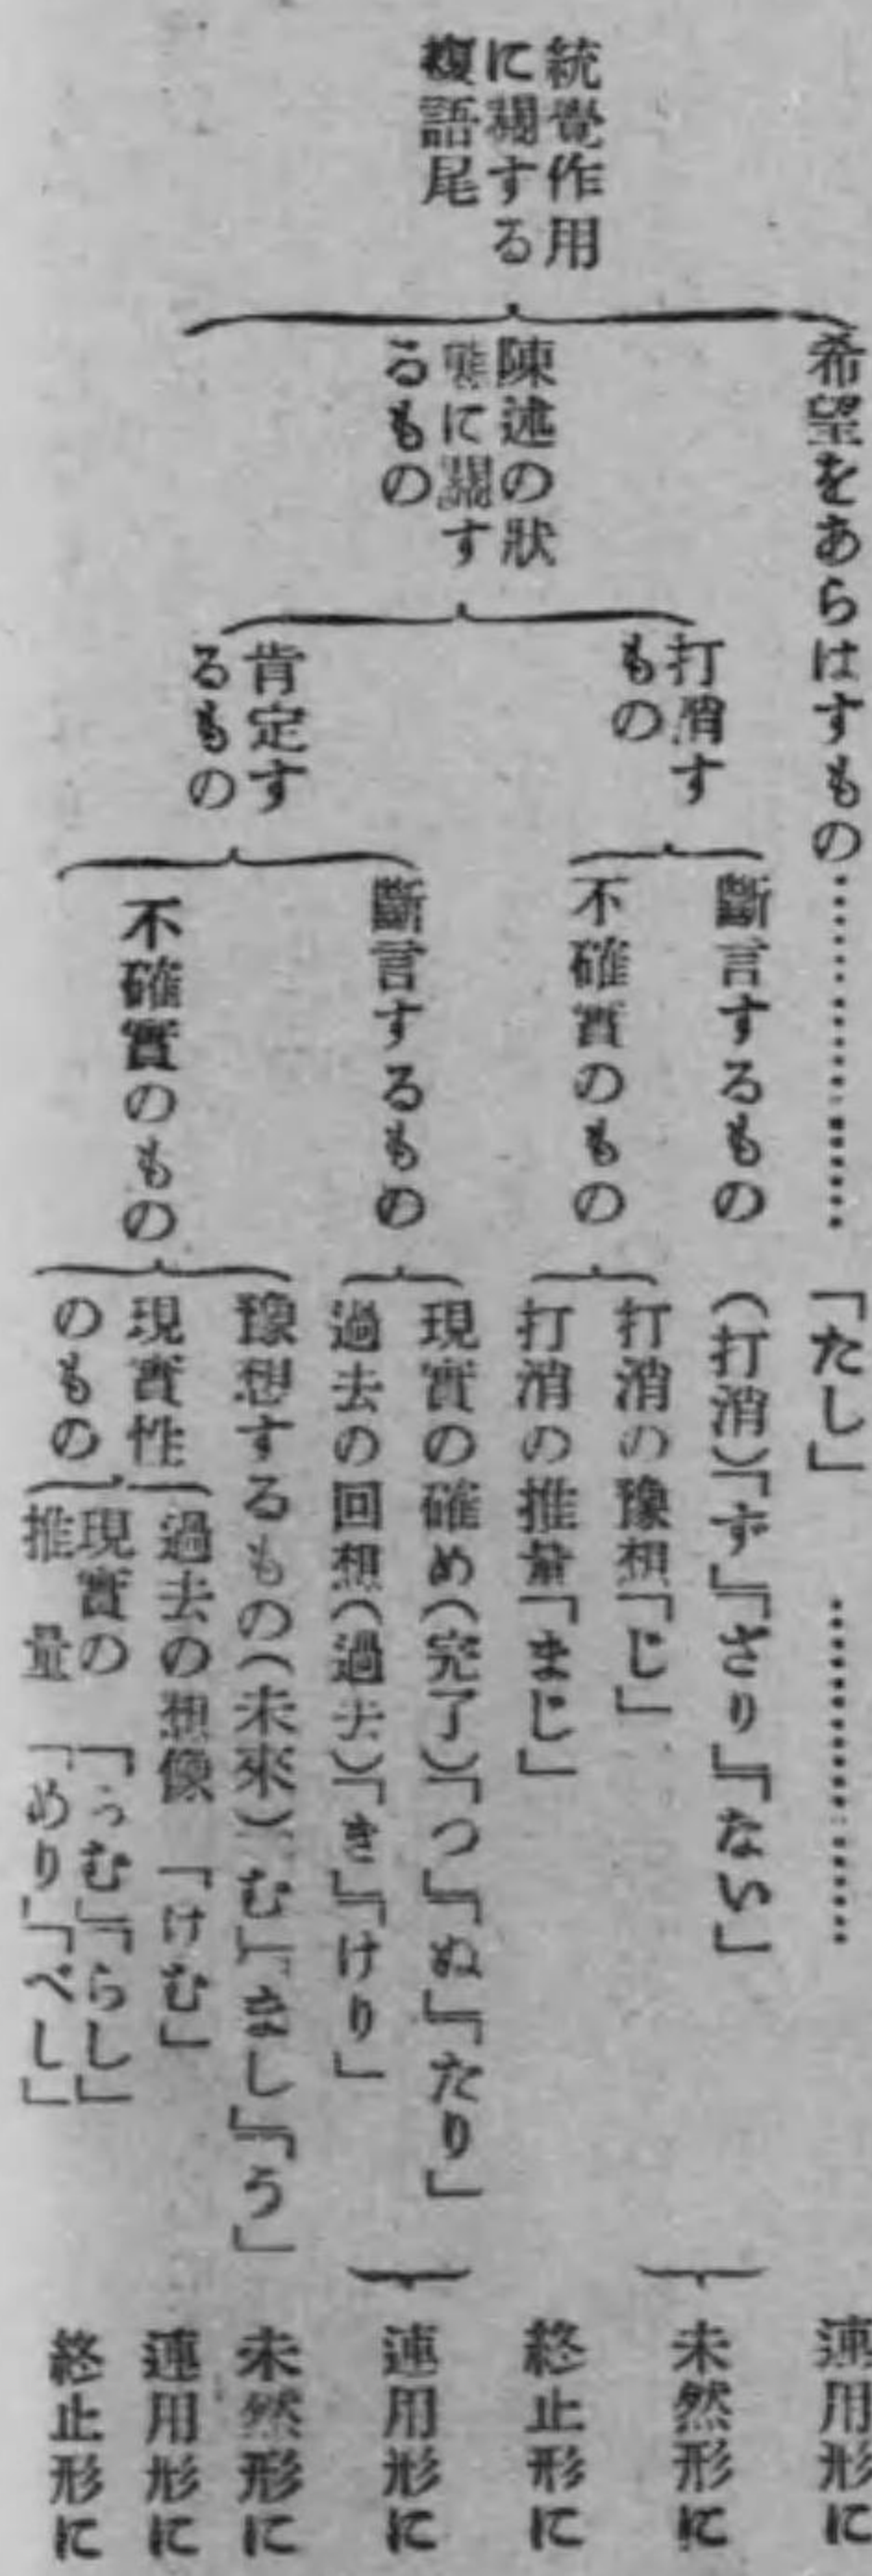 統覺作用
に關する
複語尾
希望をあらはすもの…………「たし」…………連用形に
陳述の狀
態に關す
るもの
打消す
もの
斷言するもの
(打消)「ず」「ざり」「ない」
不確實のもの
打消の豫想「じ」
未然形に
打消の推量「まじ」
終止形に
肯定す
るもの
斷言するもの
現實の確め(完了)「つ」「ぬ」「たり」
過去の回想(過去)「き」「けり」
連用形に
不確實のもの
豫想するもの(未來)「む」「まし」「う」
未然形に
現實性
のもの
過去の想像 「けむ」
連用形に
現實の
推量
「らむ」「らし」
「めり」「べし」
終止形に